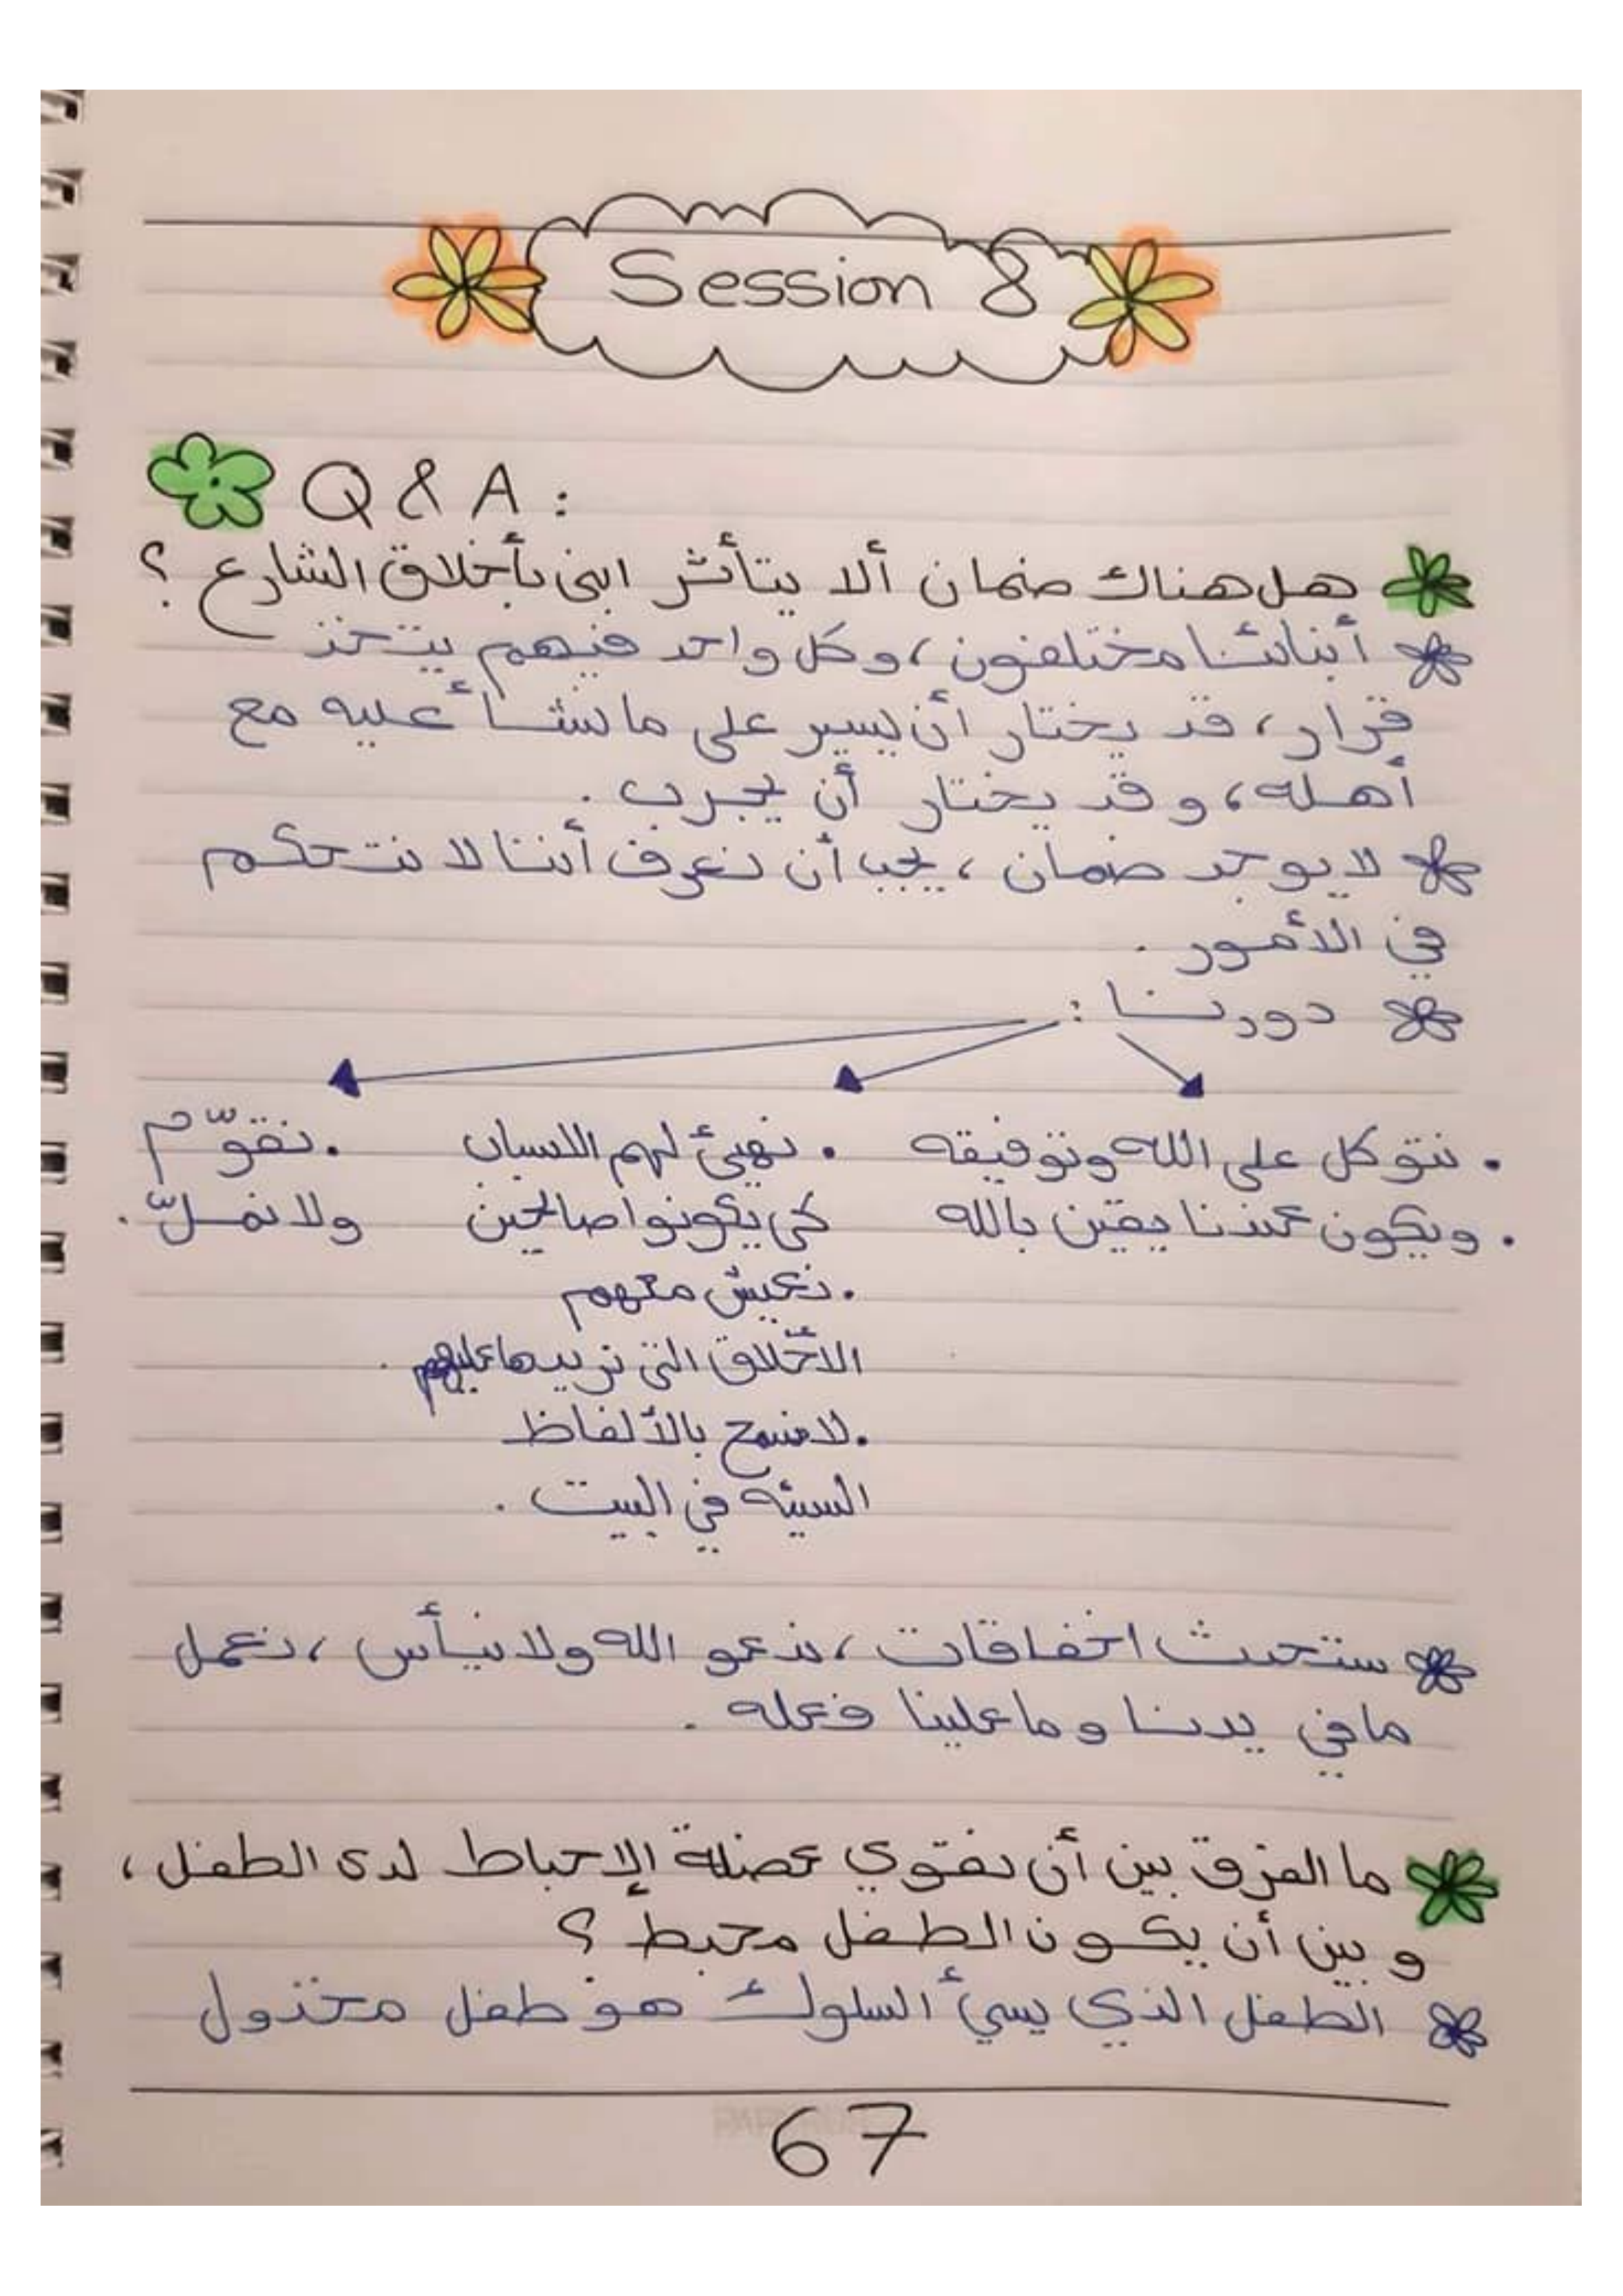 Session 8
Q & A :
هل هناك ضمان ألا يتأثر ابني بأخلاق الشارع ؟
أبنائنا مختلفون ، وكل واحد فيهم يتخذ
قرار ، قد يختار أن يسير على ما نشأ عليه مع
أهله ، وقد يختار أن يجرب .
لا يوجد ضمان ، يجب أن نعرف أننا لا نتحكم
في الأمور .
دورنا :
. نتوكل على الله وتوفيقه
. ويكون عندنا يقين بالله
. نهيئ لهم اللسان
كي يكونوا صالحين
. نعيش معهم
الأخلاق التي نريدها عليهم .
. لا نسمح بالألفاظ
السيئه في البيت .
. نقوّم
ولا نملّ .
ستحدث اخفاقات ، ندعو الله ولا نيأس ، نعمل
ما في يدنا وما علينا فعله .
ما الفرق بين أن نقوي عضلة الإحباط لدى الطفل ،
و بين أن يكون الطفل محبط ؟
الطفل الذي يسيئ السلوك هو طفل مخذول
67